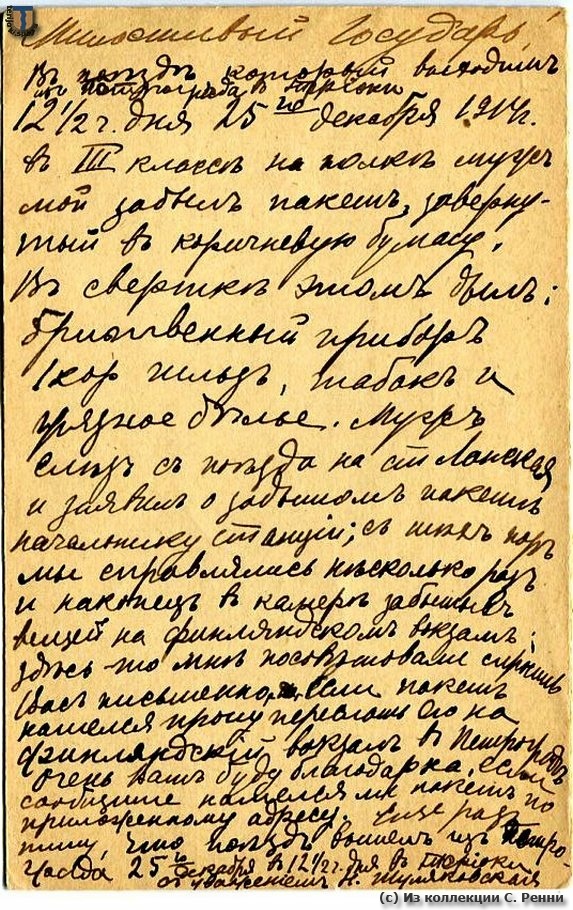 Милостивый Государь!
Въ поѣздѣ который выходилъ
изъ Петрограда въ Терiоки
12 1/2 ч. дня 25го декабря 1914 г.
въ III классѣ на полкѣ мужъ
мой забылъ пакетъ, заверну-
тый въ коричневую бумагу.
Въ сверткѣ этомъ былъ:
бритвенный приборъ
1 кор гильзъ, табакъ и
грязное бѣлье. Мужъ
слѣзъ съ поѣзда на ст Ланская
и заявилъ о забытомъ пакетѣ
начальнику станцiи; съ тѣхъ поръ
мы справлялись нѣсколько разъ
и наконецъ въ камерѣ забытыхъ
вещей на финляндскомъ вокзалѣ;
здѣсь-то мнѣ посовѣтовали спросить
Васъ письменно. Если пакетъ
нашелся прошу переслать его на
Финляндскiй вокзалъ въ Петроградѣ
Очень вамъ буду благодарна, если
сообщите нашелся ли пакетъ по
приложенному адресу. Еще разъ
пишу, что поѣздъ вышелъ изъ Петро-
града 25го декабря въ 12 1/2 г дня въ Терiоки
съ уваженiемъ Н. Туляковская
(c) Из коллекции С. Ренни
terijoki.spb.ru